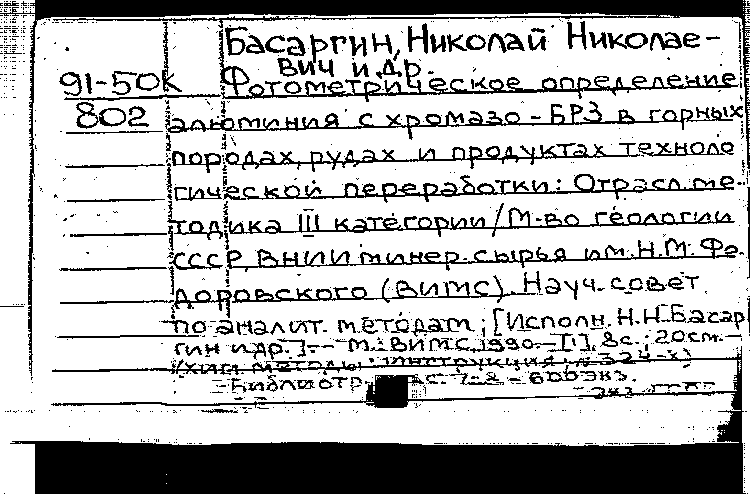 Басаргин, Николай Николае-
вич и др.
91-50К Фотометрическое определение
802 алюминия с хромазо-БРЗ в горных
породах, рудах и продуктах техноло
гической переработки: Отрасл. ме-
тодика III категории / М-во геологии
СССР, ВНИИ минер. сырья им. Н.М. Фе-
доровского (ВИМС). Науч. совет
по аналит. методам; [Исполн. Н.Н. Басар
гин и др.].-- М.: ВИМС, 1990.-[1], 8с.; 20см.-
(Хим. методы: Инструкция; N 324-Х)
-Библиогр.: с. 7-8 - 600 экз.